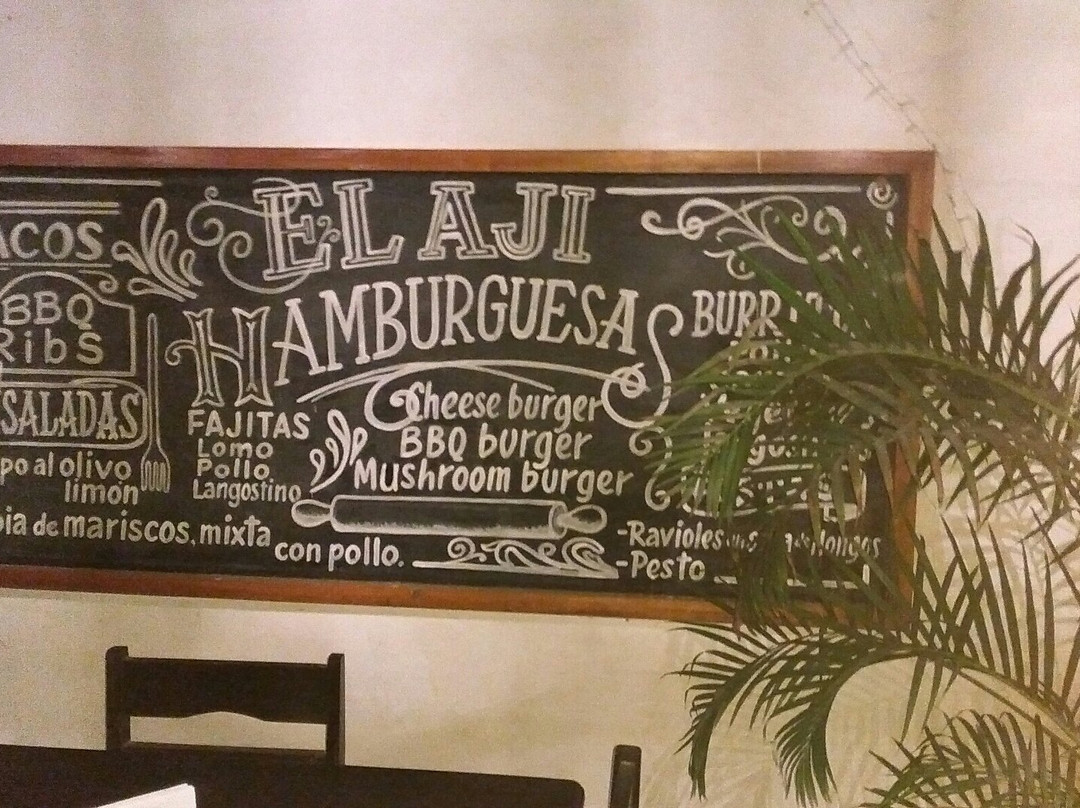 EL AJI
ACOS
BBQ
Ribs
SALADAS
po al olivo
limón
ia de mariscos, mixta
con pollo.
HAMBURGUESAS
Cheese burger
BBQ burger
Mushroom burger
FAJITAS
Lomo
Pollo
Langostino
-Ravioles
-Pesto